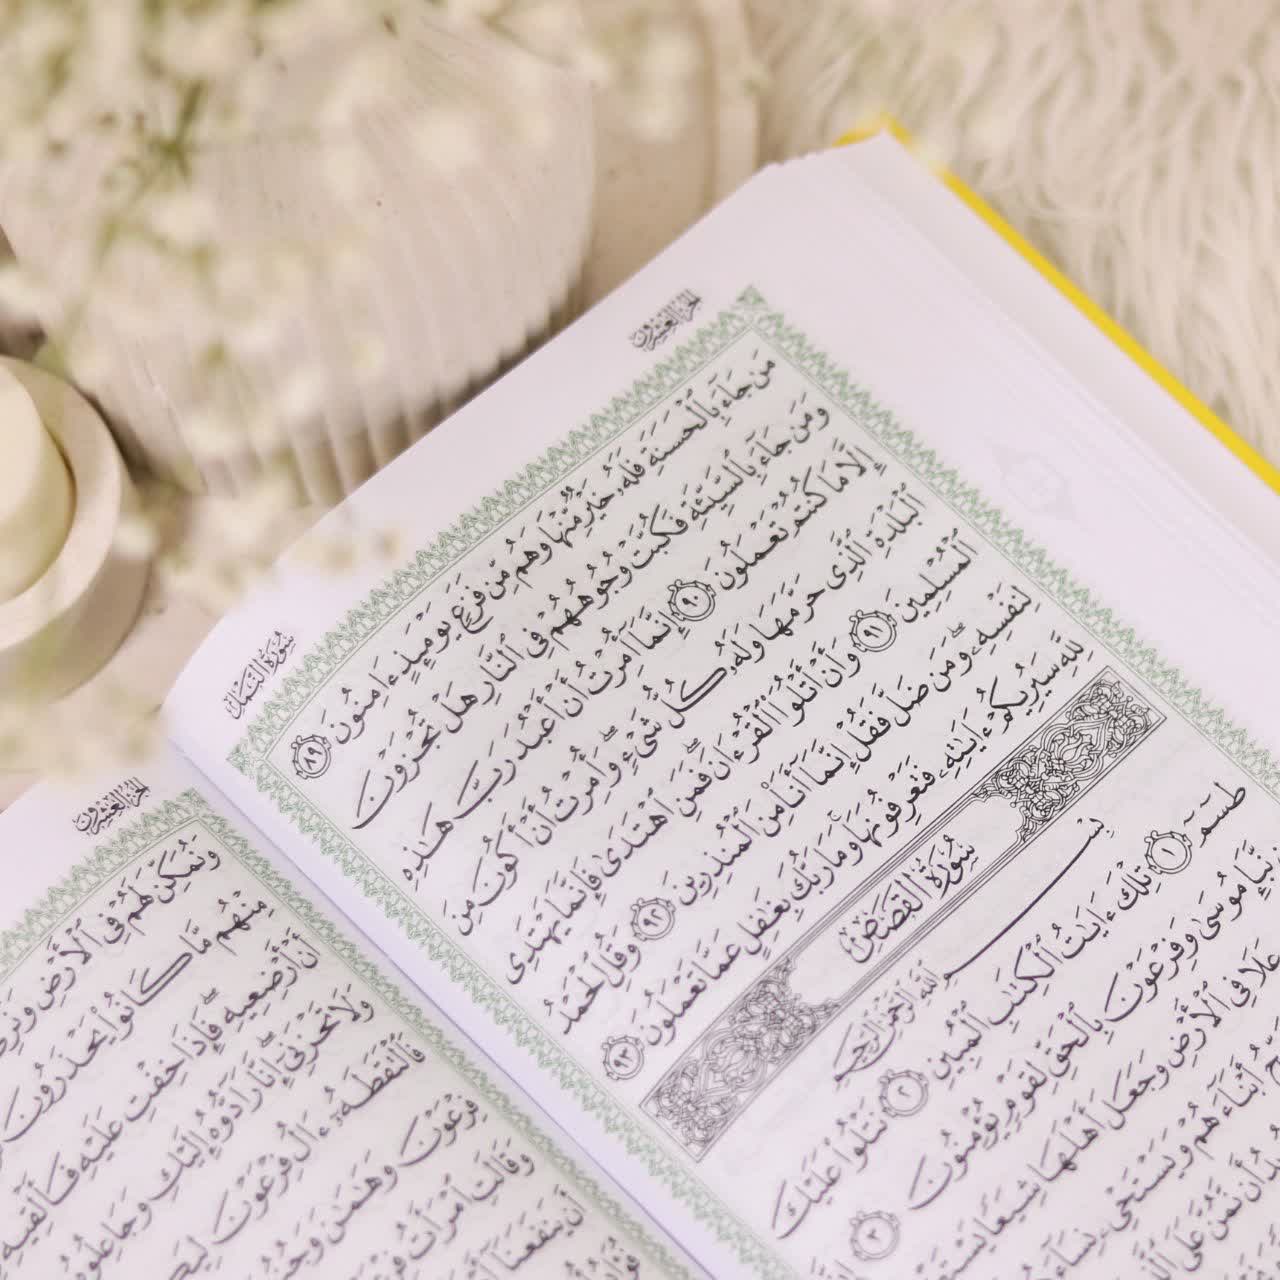 الجزء العشرون
سورة النمل
من جاء بالحسنة فله خير منها وهم من فزع يومئذ ءامنون ٨٩
ومن جاء بالسيئة فكبت وجوههم في النار هل تجزون
إلا ما كنتم تعملون ٩٠ إنما أمرت أن أعبد رب هذه
البلدة الذي حرمها وله كل شيء وأمرت أن أكون من
المسلمين ٩١ وأن أتلوا القرءان فمن اهتدى فإنما يهتدي
لنفسه ومن ضل فقل إنما أنا من المنذرين ٩٢ وقل الحمد
لله سيريكم ءايته فتعرفونها وما ربك بغفل عما تعملون ٩٣
سورة القصص
بسم الله الرحمن الرحيم
طسم ١ تلك ءايت الكتب المبين ٢ نتلوا عليك
نبإ موسى وفرعون بالحق لقوم يؤمنون ٣
علا في الأرض وجعل أهلها شيعا
أبناءهم ويستحي نساء
أن نمن على
الجزء العشرون
ونمكن لهم في الأرض ونري
منهم ما كانوا يحذرون
أن أرضعيه فإذا خفت عليه فألقيه
ولا تحزني إنا رادوه إليك وجاعلوه
فالتقطه ءال فرعون
فرعون وهمن
وقالت امرأت
أن ينفعنا